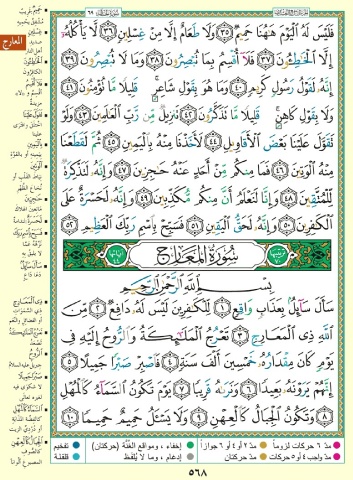 فَلَيْسَ لَهُ الْيَوْمَ هَٰهُنَا حَمِيمٌ ٣٥ وَلَا طَعَامٌ إِلَّا مِنْ غِسْلِينٍ ٣٦ لَا يَأْكُلُهُ
إِلَّا الْخَاطِئُونَ ٣٧ فَلَا أُقْسِمُ بِمَا تُبْصِرُونَ ٣٨ وَمَا لَا تُبْصِرُونَ ٣٩
إِنَّهُ لَقَوْلُ رَسُولٍ كَرِيمٍ ٤٠ وَمَا هُوَ بِقَوْلِ شَاعِرٍ قَلِيلًا مَا تُؤْمِنُونَ ٤١
وَلَا بِقَوْلِ كَاهِنٍ قَلِيلًا مَا تَذَكَّرُونَ ٤٢ تَنْزِيلٌ مِنْ رَبِّ الْعَالَمِينَ ٤٣ وَلَوْ
تَقَوَّلَ عَلَيْنَا بَعْضَ الْأَقَاوِيلِ ٤٤ لَأَخَذْنَا مِنْهُ بِالْيَمِينِ ٤٥ ثُمَّ لَقَطَعْنَا
مِنْهُ الْوَتِينَ ٤٦ فَمَا مِنْكُمْ مِنْ أَحَدٍ عَنْهُ حَاجِزِينَ ٤٧ وَإِنَّهُ لَتَذْكِرَةٌ
لِلْمُتَّقِينَ ٤٨ وَإِنَّا لَنَعْلَمُ أَنَّ مِنْكُمْ مُكَذِّبِينَ ٤٩ وَإِنَّهُ لَحَسْرَةٌ عَلَى
الْكَافِرِينَ ٥٠ وَإِنَّهُ لَحَقُّ الْيَقِينِ ٥١ فَسَبِّحْ بِاسْمِ رَبِّكَ الْعَظِيمِ ٥٢
سُورَةُ الْمَعَارِجِ
بِسْمِ اللَّهِ الرَّحْمَٰنِ الرَّحِيمِ
سَأَلَ سَائِلٌ بِعَذَابٍ وَاقِعٍ ١ لِلْكَافِرِينَ لَيْسَ لَهُ دَافِعٌ ٢ مِنَ
اللَّهِ ذِي الْمَعَارِجِ ٣ تَعْرُجُ الْمَلَائِكَةُ وَالرُّوحُ إِلَيْهِ فِي
يَوْمٍ كَانَ مِقْدَارُهُ خَمْسِينَ أَلْفَ سَنَةٍ ٤ فَاصْبِرْ صَبْرًا جَمِيلًا ٥
إِنَّهُمْ يَرَوْنَهُ بَعِيدًا ٦ وَنَرَاهُ قَرِيبًا ٧ يَوْمَ تَكُونُ السَّمَاءُ كَالْمُهْلِ
٨ وَتَكُونُ الْجِبَالُ كَالْعِهْنِ ٩ وَلَا يَسْأَلُ حَمِيمٌ حَمِيمًا ١٠
المعارج
مدّ ٦ حركات لزوماً
مدّ ٢ أو ٤ أو ٦ جوازاً
إخفاء، ومواقع الغُنَّة (حركتان)
تفخيم
مدّ واجب ٤ أو ٥ حركات
مدّ حركتان
إدغام، وما لا يُلفَظ
قلقلة
٥٦٨